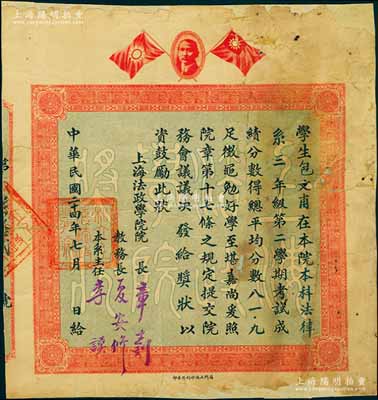 上海陽明拍賣
學生包文甫在本院本科法律
系三年級第一學期考試成
績分數得總平均分數八一·九
足徵黽勉好學至堪嘉尚爰照
院章第十七條之規定提交院
務會議議決發給獎狀以
資鼓勵此狀
上海法政學院院長章
教務長
本系主任李謨
中華民國二十四年七月 日給
上海陽明拍賣